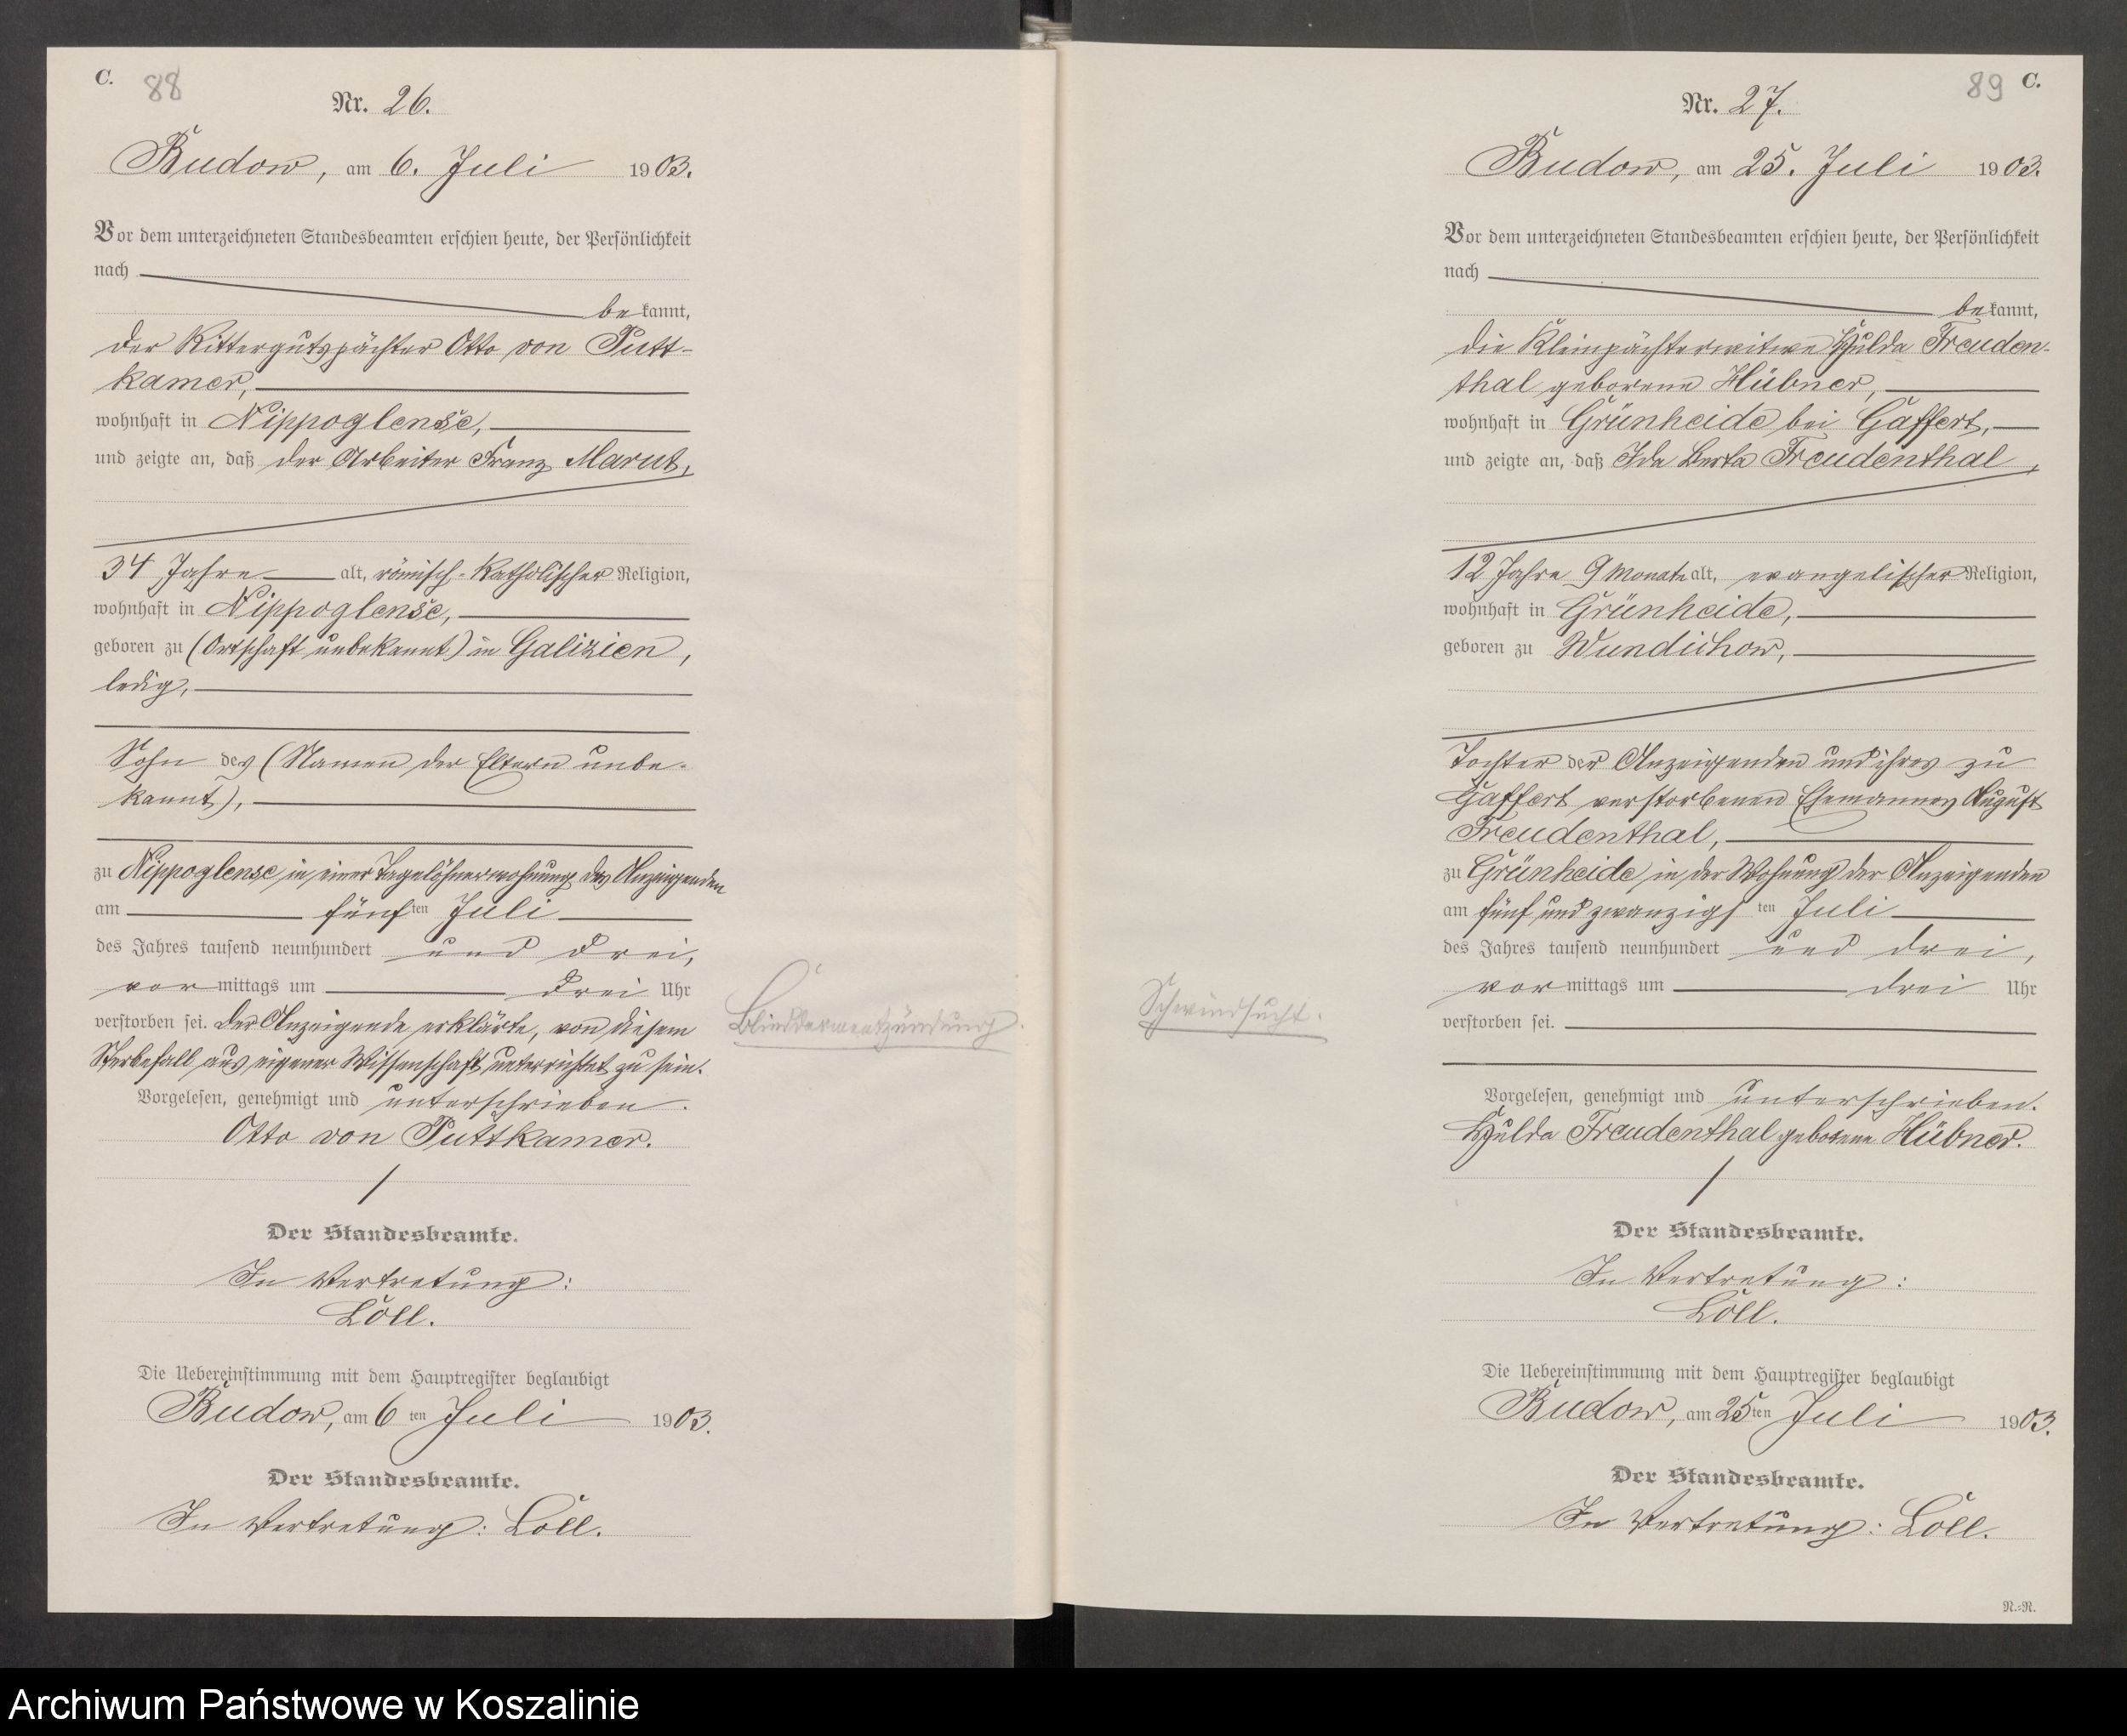 C. 88
Nr. 26.
Budow, am 6. Juli 1903.
Vor dem unterzeichneten Standesbeamten erschien heute, der Persönlichkeit
nach
bekannt,
der Rittergutspächter Otto von Putt-
kamer,
wohnhaft in Nippoglense,
und zeigte an, daß der Arbeiter Franz Marut,
34 Jahre alt, römisch-katholischer Religion,
wohnhaft in Nippoglense,
geboren zu (Ortschaft unbekannt) in Galizien,
ledig,
Sohn des (Namen der Eltern unbe-
kannt),
zu Nippoglense in einer Tagelöhnerwohnung des Anzeigenden
am fünften Juli
des Jahres tausend neunhundert und drei,
vormittags um drei Uhr
verstorben sei. Der Anzeigende erklärte, von diesem
Sterbefall aus eigener Wissenschaft unterrichtet zu sein.
Blinddarmentzündung.
Vorgelesen, genehmigt und unterschrieben.
Otto von Puttkamer.
Der Standesbeamte.
In Vertretung:
Löll.
Die Uebereinstimmung mit dem Hauptregister beglaubigt
Budow, am 6ten Juli 1903.
Der Standesbeamte.
In Vertretung: Löll.
89 C.
Nr. 27.
Budow, am 25. Juli 1903.
Vor dem unterzeichneten Standesbeamten erschien heute, der Persönlichkeit
nach
bekannt,
die Kleinpächterwitwe Hulda Freuden-
thal geborene Hübner,
wohnhaft in Grünheide bei Gaffert,
und zeigte an, daß Ida Berta Freudenthal,
12 Jahre 9 Monate alt, evangelischer Religion,
wohnhaft in Grünheide,
geboren zu Wundichow,
Tochter der Anzeigenden und ihres zu
Gaffert verstorbenen Ehemannes August
Freudenthal,
zu Grünheide in der Wohnung der Anzeigenden
am fünf und zwanzigsten Juli
des Jahres tausend neunhundert und drei,
vormittags um drei Uhr
verstorben sei.
Schwindsucht.
Vorgelesen, genehmigt und unterschrieben.
Hulda Freudenthal geborene Hübner.
Der Standesbeamte.
In Vertretung:
Löll.
Die Uebereinstimmung mit dem Hauptregister beglaubigt
Budow, am 25ten Juli 1903.
Der Standesbeamte.
In Vertretung: Löll.
N.=N.
Archiwum Państwowe w Koszalinie